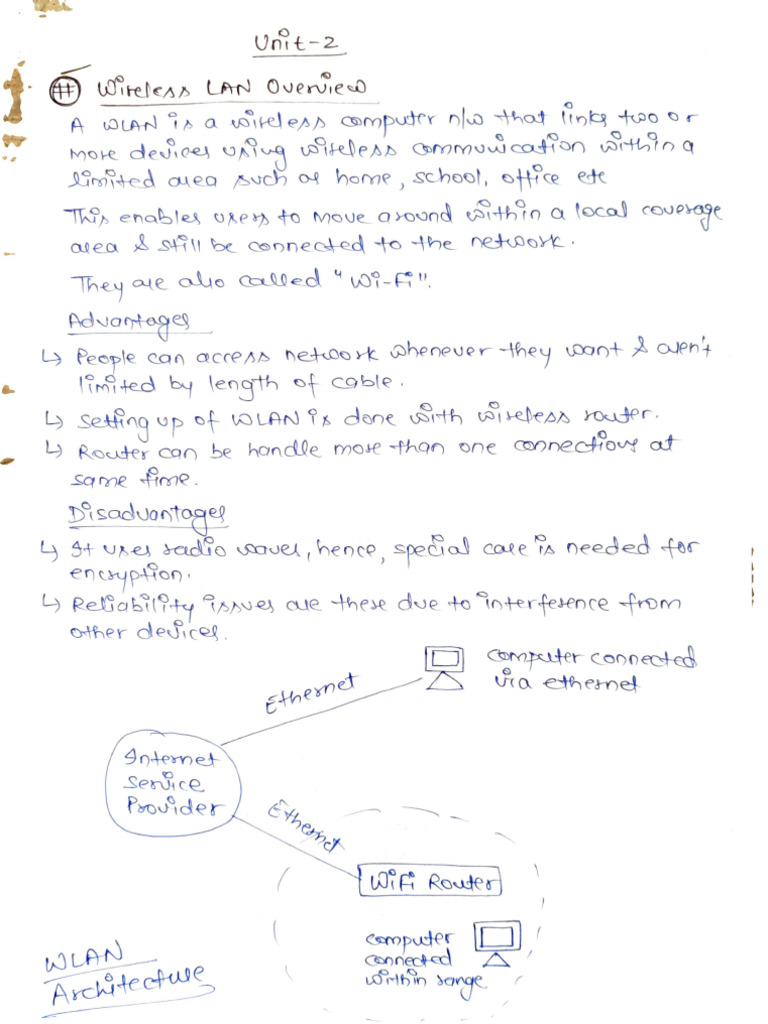 Unit-2
# Wireless LAN Overview
A WLAN is a wireless computer n/w that links two or
more devices using wireless communication within a
limited area such as home, school, office etc
This enables users to move around within a local coverage
area & still be connected to the network.
They are also called "Wi-Fi".
Advantages
↳ People can access network whenever they want & aren't
limited by length of cable.
↳ Setting up of WLAN is done with wireless router.
↳ Router can be handle more than one connections at
same time.
Disadvantages
↳ It uses radio waves, hence, special care is needed for
encryption.
↳ Reliability issues are there due to interference from
other devices.
Ethernet
computer connected
via ethernet
Internet
Service
Provider
Ethernet
WiFi Router
computer
connected
within range
WLAN
Architecture